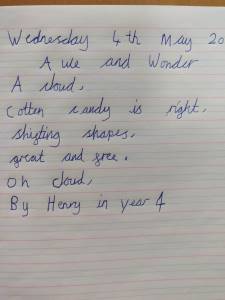 Wednesday 4th May 20
Awe and Wonder
A cloud,
Cotten candy is right,
shifting shapes,
great and free.
Oh cloud,
By Henry in year 4